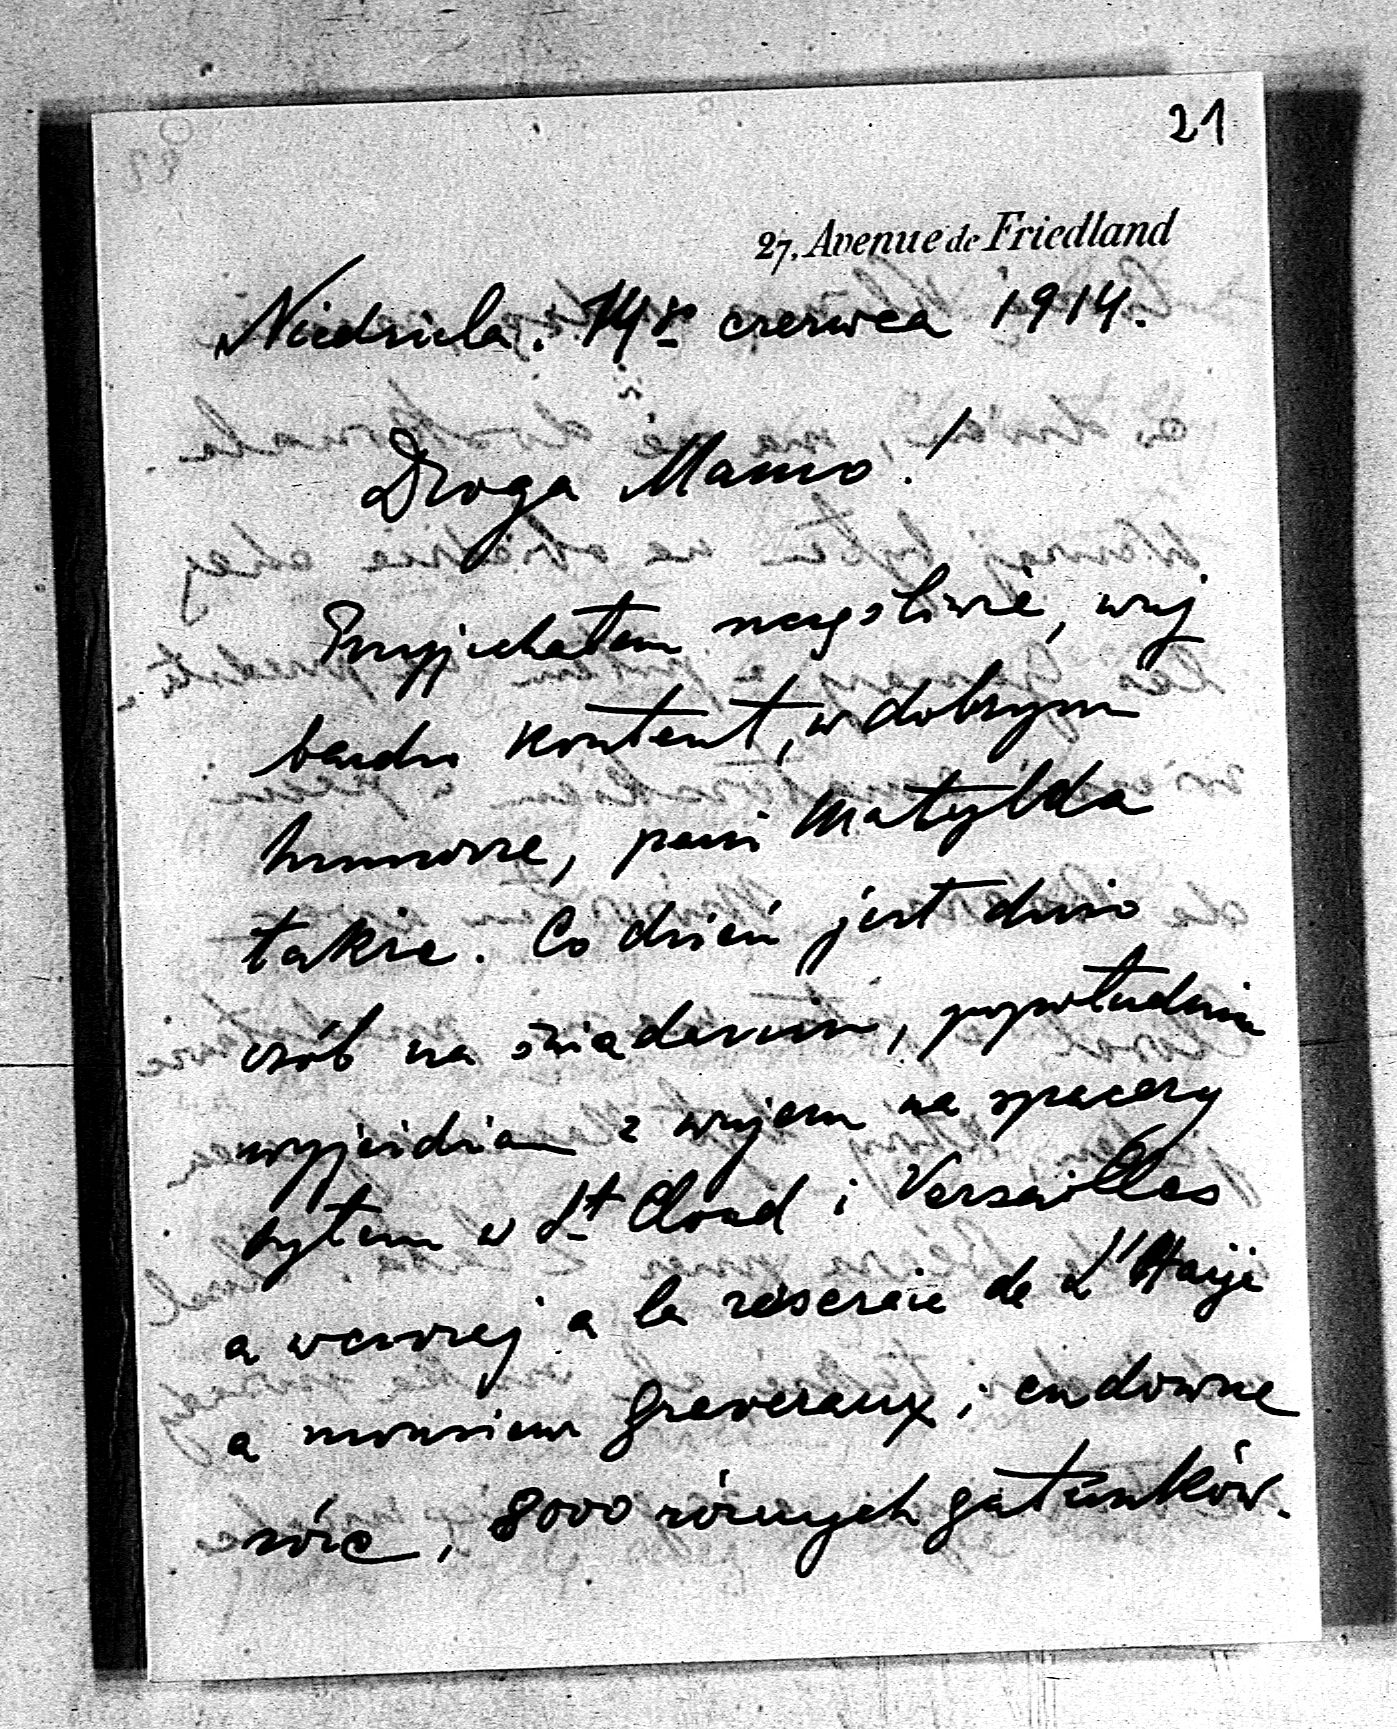 21
27, Avenue de Friedland
Niedziela. 14go czerwca 1914.
Droga Mamo!
Przyjechałem szczęśliwie, wuj
bardzo kontent, w dobrym
humorze, pani Matylda
także. Co dzień jest dużo
osób na śniadaniu, popołudniu
wyjeżdżam z wujem na spacery
byłem w St Cloud i Versailles
a wczoraj a la roseraie de L'Haye
a monsieur Gravereaux; cudowne
róże, 8000 różnych gatunków.